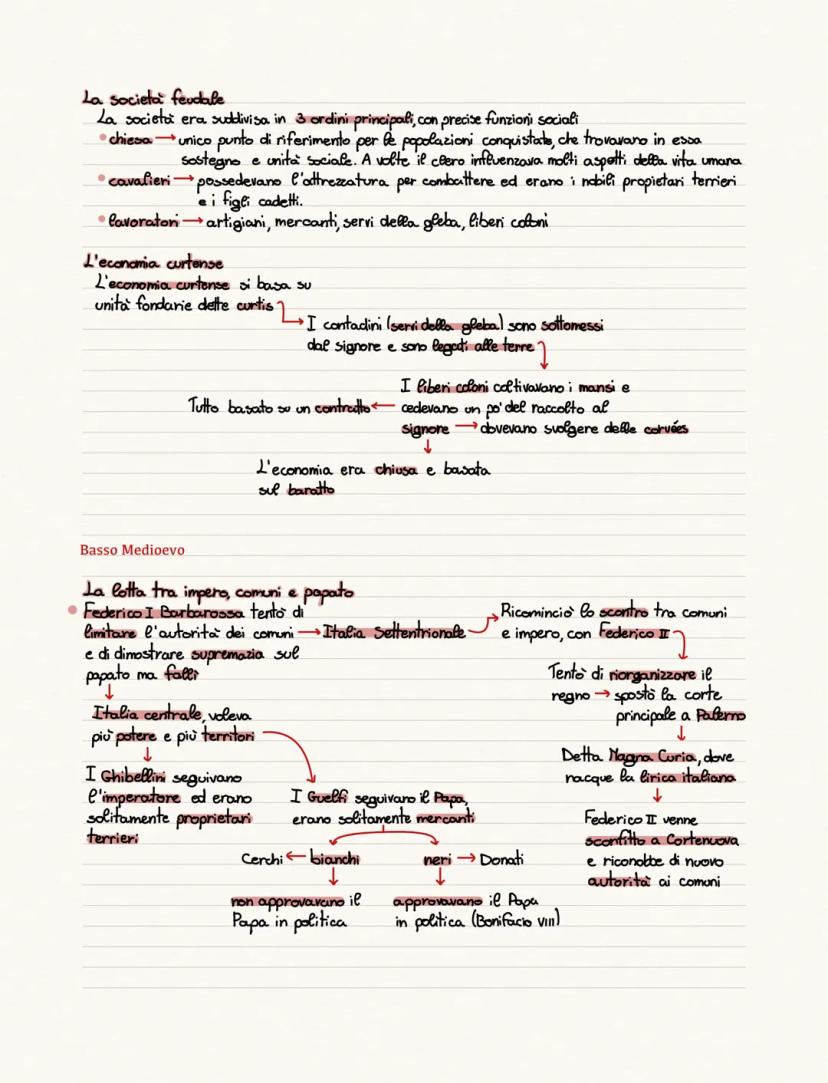 La società feudale
La società era suddivisa in 3 ordini principali, con precise funzioni sociali
• chiesa → unico punto di riferimento per le popolazioni conquistate, che trovavano in essa
sostegno e unità sociale. A volte il clero influenzava molti aspetti della vita umana
• cavalieri → possedevano l'attrezzatura per combattere ed erano i nobili propietari terrieri
e i figli cadetti.
• lavoratori → artigiani, mercanti, servi della gleba, liberi coloni
L'economia curtense
L'economia curtense si basa su
unità fondarie dette curtis
I contadini (servi della gleba) sono sottomessi
dal signore e sono legati alle terre
I liberi coloni coltivavano i mansi e
Tutto basato su un contratto ← cedevano un po' del raccolto al
signore → dovevano svolgere delle corvées
L'economia era chiusa e basata
sul baratto
Basso Medioevo
La lotta tra impero, comuni e papato
• Federico I Barbarossa tentò di
limitare l'autorità dei comuni → Italia Settentrionale
e di dimostrare supremazia sul
papato ma fallì
Italia centrale, voleva
più potere e più territori
I Ghibellini seguivano
l'imperatore ed erano
solitamente proprietari
terrieri
I Guelfi seguivano il Papa,
erano solitamente mercanti
Cerchi ← bianchi
neri → Donati
non approvavano il
Papa in politica
approvavano il Papa
in politica (Bonifacio VIII)
Ricominciò lo scontro tra comuni
e impero, con Federico II
Tentò di riorganizzare il
regno → spostò la corte
principale a Palermo
Detta Magna Curia, dove
nacque la lirica italiana
Federico II venne
sconfitto a Cortenuova
e riconobbe di nuovo
autorità ai comuni